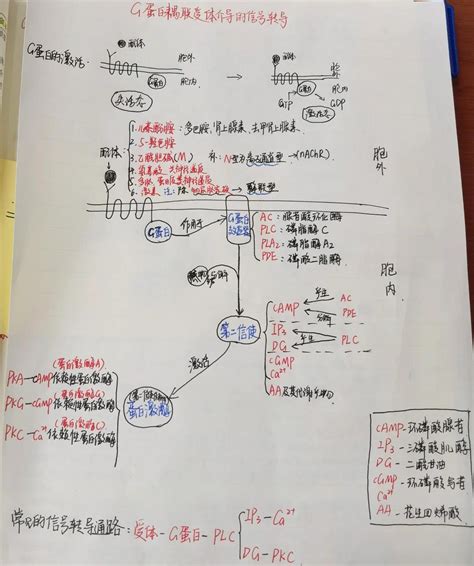 G蛋白耦联受体介导的信号转导
G蛋白的激活:
配体
胞外
胞内
G蛋白
失活态
配体
胞外
胞内
G蛋白
GTP
GDP
激活态
配体:
1.儿茶酚胺:多巴胺、肾上腺素、去甲肾上腺素.
2.5-羟色胺
3.乙酰胆碱(M)
N型为离子通道型→(nAChR)
4.氨基酸
5.多肽、蛋白质类
6.
胞外
G蛋白
作用于
G蛋白效应器
AC:腺苷酸环化酶
PLC:磷脂酶C
PLA2:磷脂酶A2
PDE:磷酸二酯酶
胞内.
第二信使
cAMP
AC
PDE
IP3
DG
PLC
cGMP
Ca²⁺
AA及其代谢产物
激活
蛋白激酶
(蛋白激酶A)
PKA-cAMP依赖性蛋白激酶
(蛋白激酶G)
PKG-cGMP依赖性蛋白激酶
(蛋白激酶C)
PKC-Ca²⁺依赖性蛋白激酶
cAMP-环磷酸腺苷
IP3-三磷酸肌醇
DG-二酰甘油
cGMP-环磷酸鸟苷
Ca²⁺
AA-花生四烯酸
常见的信号转导通路:受体-G蛋白-PLC
IP3-Ca²⁺
DG-PKC